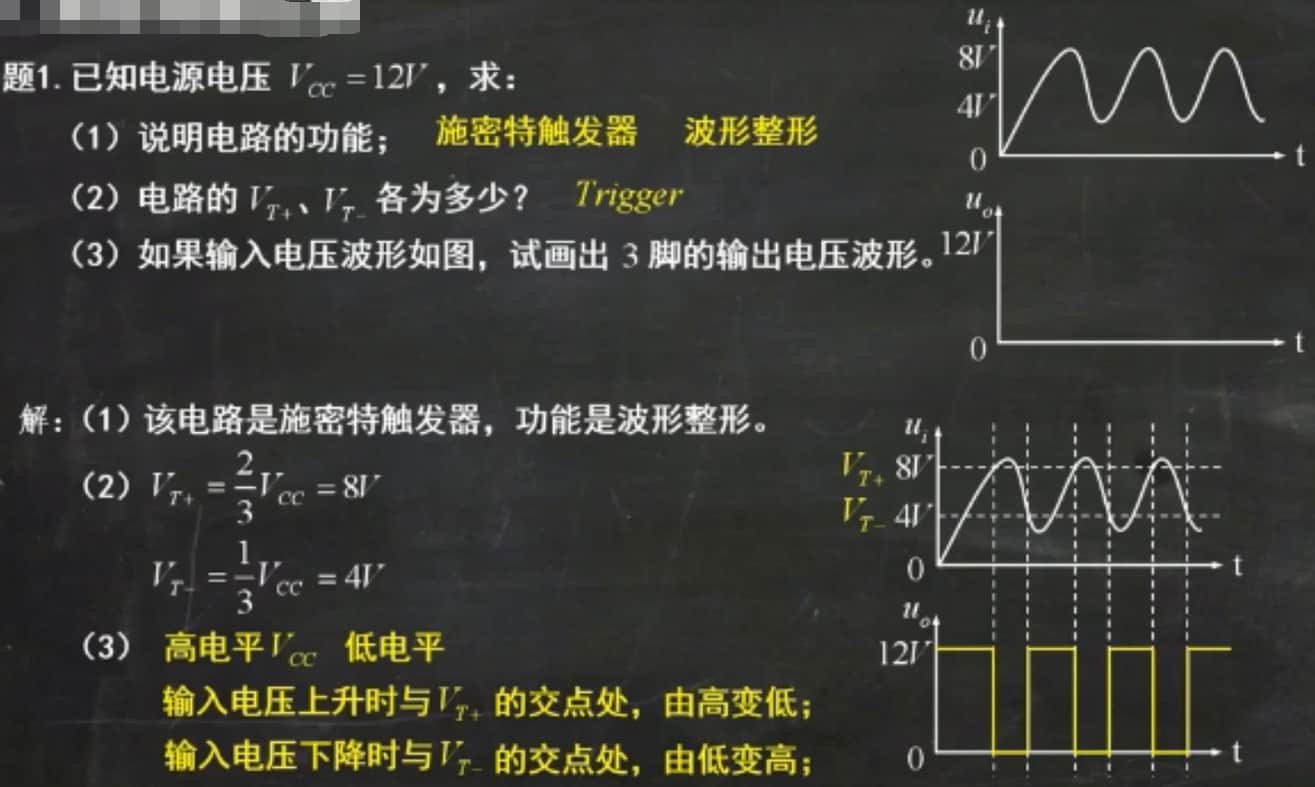 题1. 已知电源电压 V_CC = 12V ，求：
（1）说明电路的功能； 施密特触发器 波形整形
（2）电路的 V_T+ 、V_T- 各为多少？ Trigger
（3）如果输入电压波形如图，试画出 3 脚的输出电压波形。
u_i
8V
4V
0
t
u_o
12V
0
t
解：（1）该电路是施密特触发器，功能是波形整形。
（2）V_T+ = 2/3 V_CC = 8V
V_T- = 1/3 V_CC = 4V
（3） 高电平V_CC 低电平
输入电压上升时与V_T+ 的交点处，由高变低；
输入电压下降时与V_T- 的交点处，由低变高；
u_i
V_T+ 8V
V_T- 4V
0
t
u_o
12V
0
t